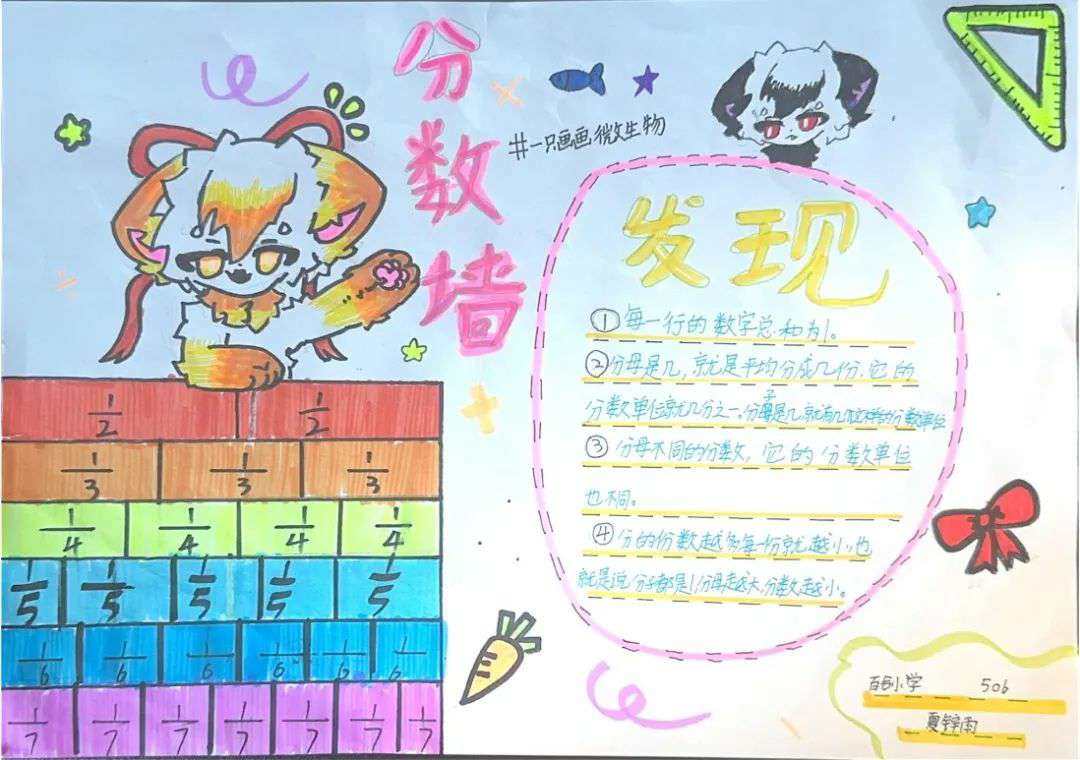 分数墙
#一只画画微生物
发现
①每一行的数字总和为1。
②分母是几,就是平均分成几份.它的
分数单位就几分之一、分子是几就有几个这样的分数单位
③分母不同的分数,它的分数单位
也不同。
④分的份数越多每一份就越小也
就是说分子都是1分母越大,分数越小。
1/2 1/2
1/3 1/3 1/3
1/4 1/4 1/4 1/4
1/5 1/5 1/5 1/5 1/5
1/6 1/6 1/6 1/6 1/6 1/6
1/7 1/7 1/7 1/7 1/7 1/7 1/7
小学 506
夏雨